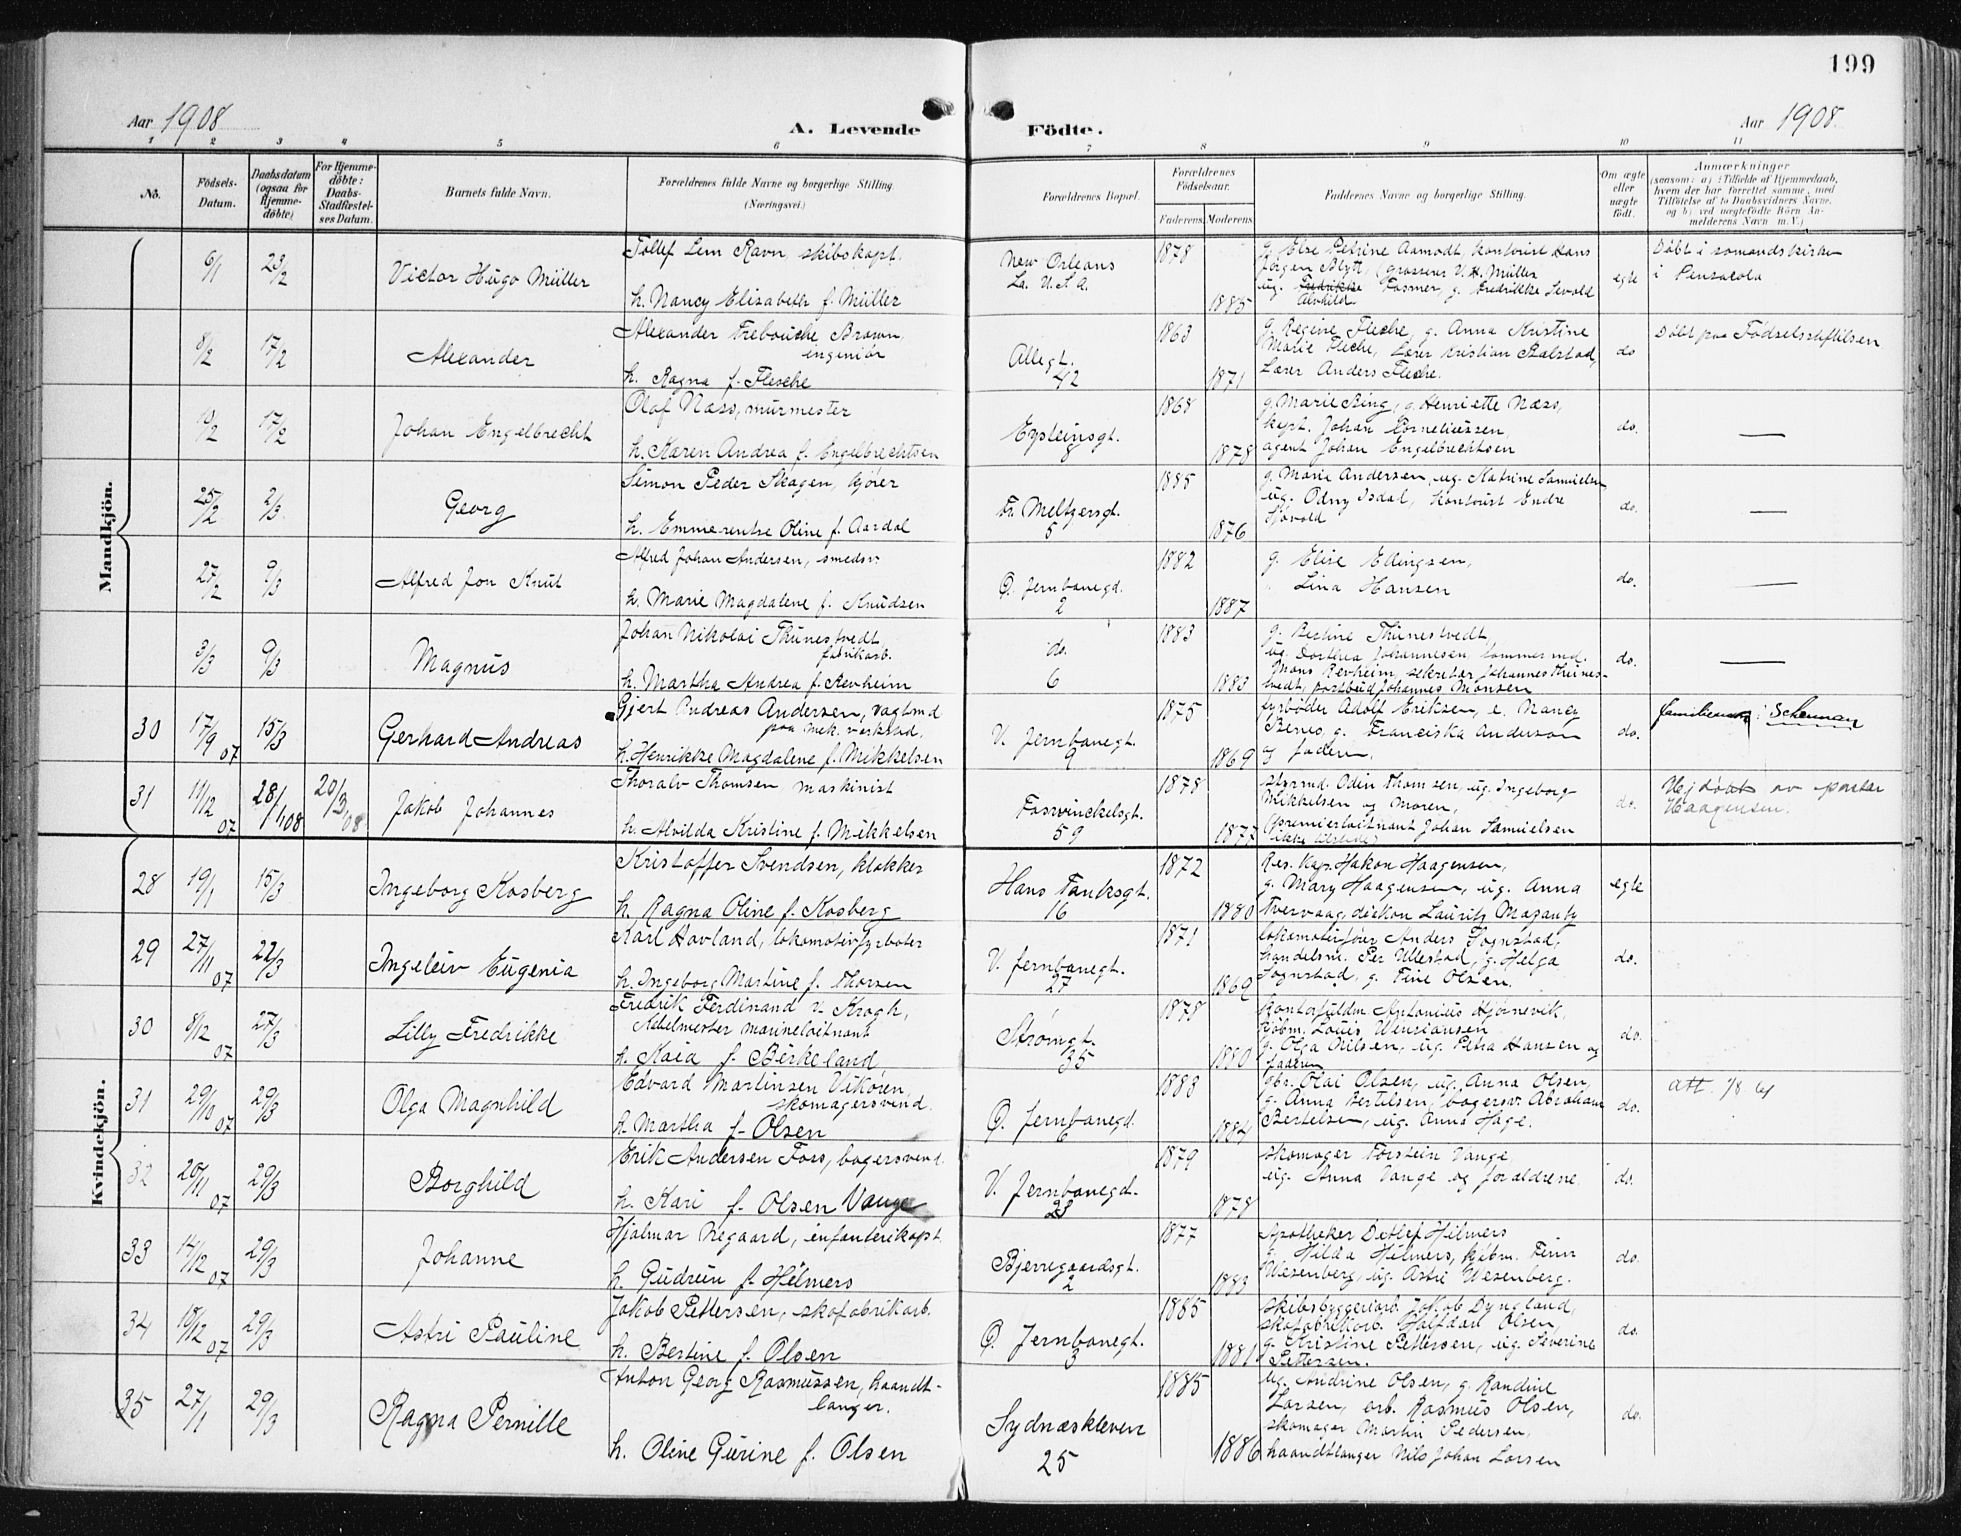 199
Aar 1908
A. Levende Födte.
Aar 1908.
1 2 3 4 5 6 7 8 9 10 11
No.
Födsels-Datum.
Daabsdatum (ogsaa for Hjemme-døbte)
For Hjemme-døbte: Daabs-Stadfæstel-ses Datum.
Barnets fulde Navn.
Forældrenes fulde Navne og borgerlige Stilling (Næringsvei.)
Forældrenes Bopæl.
Forældrenes Födselsaar.
Faderens Moderens
Faddernes Navne og borgerlige Stilling.
Om ægte eller uægte födt.
Anmærkninger
(saasom: a) i Tilfælde af Hjemmedaab,
hvem der har forrettet samme, med
Tilföielse af to Daabsvidners Navne.
og b) ved uægtefödte Börn An-
melderens Navn m. V.)
Mandkjön.
6/1 23/2 Victor Hugo Müller
Tollef Lem Ravn, skibskapt.
h. Nancy Elizabeth f. Müller
New Orleans
La. U.S.A.
1878 1885
g. Else Petrine Aamodt, kontorist Hans
Jørgen Blytt, grosserer V. H. Müller
ug. Fredrikke Fasmer, g. Fredrikke Sevold
egte
Døbt i sømandskirken
i Pensacola
8/2 17/2 Alexander
Alexander Trebouche Brown
ingeniør
h. Ragna f. Flesche
Allegt.
42
1863 1871
g. Regine Fleche, g. Anna Kristine
Marie Fleche, Lærer Kristian Balstad,
Lærer Anders Fleche.
do
Døbt paa Fødselsstiftelsen
10/2 17/2 Johan Engelbrecht
Olaf Næss, murmester
h. Karen Andrea f. Engelbrechtsen
Eysteinsgt.
8
1868 1878
g. Marie Bing, g. Henriette Næss,
kapt. Johan Corneliussen,
agent Johan Engelbrechtsen
do.
—
25/2 2/3 Georg
Simon Peder Skagen, kjører
h. Emmerentse Oline f. Aardal
Fr. Meltzersgt.
5
1885 1876
g. Marie Andersen, ug. Katrine Samuelsen
ug. Odny Isdal, kontorist Endre
Sjøvold
do.
—
27/2 9/3 Alfred Jon Knut
Alfred Johan Andersen, smedsv.
h. Marie Magdalene f. Knudsen
Ø. Jernbanegd.
2
1882 1887
g. Elise Edingsen,
Lina Hansen
do.
—
3/3 9/3 Magnus
Johan Nikolai Thunestvedt
fabrikarb.
h. Martha Andrea f. Revheim
do.
6
1883 1883
g. Bertine Thunestvedt,
ug. Dorthea Johannesen, tømmermd.
Mons Revheim, sekretær Johannes Thunes-
tvedt, postbud Johannes Monsen
do.
—
30 17/9 07 15/3 Gerhard Andreas
Gjert Andreas Andersen, vagtmd
paa mek. verksted.
h. Henrikke Magdalene f. Mikkelsen
V. Jernbanegt.
9
1875 1869
fyrbøder Adolf Eriksen, e. Nancy
Benes, g. Franciska Anderson
og faderen.
do.
familienavn: Scheman
31 11/12 07 28/1 08 20/3 08 Jakob Johannes
Thoralv Thomsen maskinist
h. Alvilda Kristine f. Mikkelsen
Fosswinckelsgt.
59
1878 1877
styrmd. Odin Thomsen, ug. Ingeborg
Mikkelsen og moren.
(premierløitnant Johan Samuelsen
ikke tilstede)
do.
Hj.døbt av pastor
Haagensen.
Kvindekjön.
28 19/1 15/3 Ingeborg Kosberg
Kristoffer Svendsen, klokker
h. Ragna Oline f. Kosberg
Hans Tanksgt.
16
1872 1880
Res. Kap. Hakon Haagensen,
g. Mary Haagensen, ug. Anna
Tvervaag, diakon Lauritz Mazanti
egte
29 27/11 07 22/3 Ingeleiv Eugenia
Karl Hovland, lokomotivfyrbøter
h. Ingeborg Martine f. Thorsen
V. Jernbanegt.
27
1871 1869
lokomotivfører Anders Sognstad,
handelsm. Per Ullestad, g. Helga
Sognstad, g. Tine Olsen.
do.
30 8/12 07 27/3 Lilly Fredrikke
Fredrik Ferdinand v. Krogh,
Kabelmester marineløitnant
h. Kaia f. Birkeland
Strømgt.
35
1878 1880
Kontorfuldm. Antonius Hjørnevik,
kjøbm. Louis Wensiansen
g. Olga Nilsen, ug. Petra Hansen og
faderen
do.
31 29/10 07 29/3 Olga Magnhild
Edvard Martinsen Vikøren,
skomagersvend.
h. Martha f. Olsen
Ø. Jernbanegd.
6
1883 1884
gbr. Olai Olsen, ug. Anna Olsen,
g. Anna Bertelsen, bagersv. Abraham
Bertelsen, ug. Anna Hage.
do.
att. 1/8 61
32 20/11 07 29/3 Borghild
Erik Andersen Foss, bagersvend.
h. Kari f. Olsen Vange
V. Jernbanegd.
23
1879 1878
skomager Torstein Vange
ug. Anna Vange og forældrene.
do.
33 14/12 07 29/3 Johanne
Hjalmar Negaard, infanterikapt.
h. Gudrun f. Hilmers
Bjerregaardsgt.
2
1877 1883
Apotheker Detlef Hilmers
g. Hilda Hilmers, kjøbm. Finn
Wesenberg, ug. Astri Wesenberg.
do.
34 18/12 07 29/3 Astri Pauline
Jakob Pettersen, skofabrikarb.
h. Bertine f. Olsen
Ø. Jernbanegt.
3
1885 1881
skibsbyggeriarb. Jakob Dyngland,
skofabrikarb. Halfdan Olsen,
g. Kristine Pettersen, ug. Severine
Pettersen.
do.
35 27/1 29/3 Ragna Pernille
Anton Georg Rasmussen, haandt-
langer.
h. Oline Gurine f. Olsen
Sydnæskleven
25
1885 1886
ug. Andrine Olsen, g. Randine
Larsen, arb. Rasmus Olsen,
skomager Martin Pedersen,
haandtlanger Nils Johan Larsen
do.